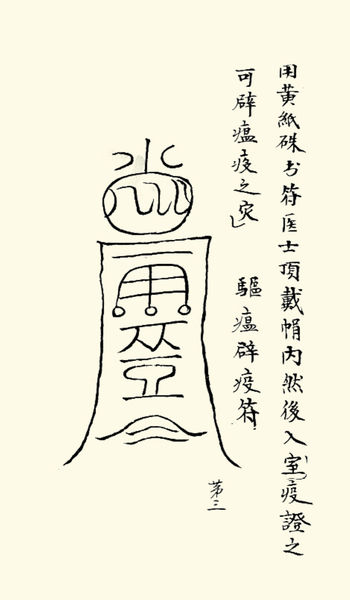 用黄紙硃书符医士頂戴帽内然後入室疫證之
可辟瘟疫之灾
驅瘟辟疫符
第三